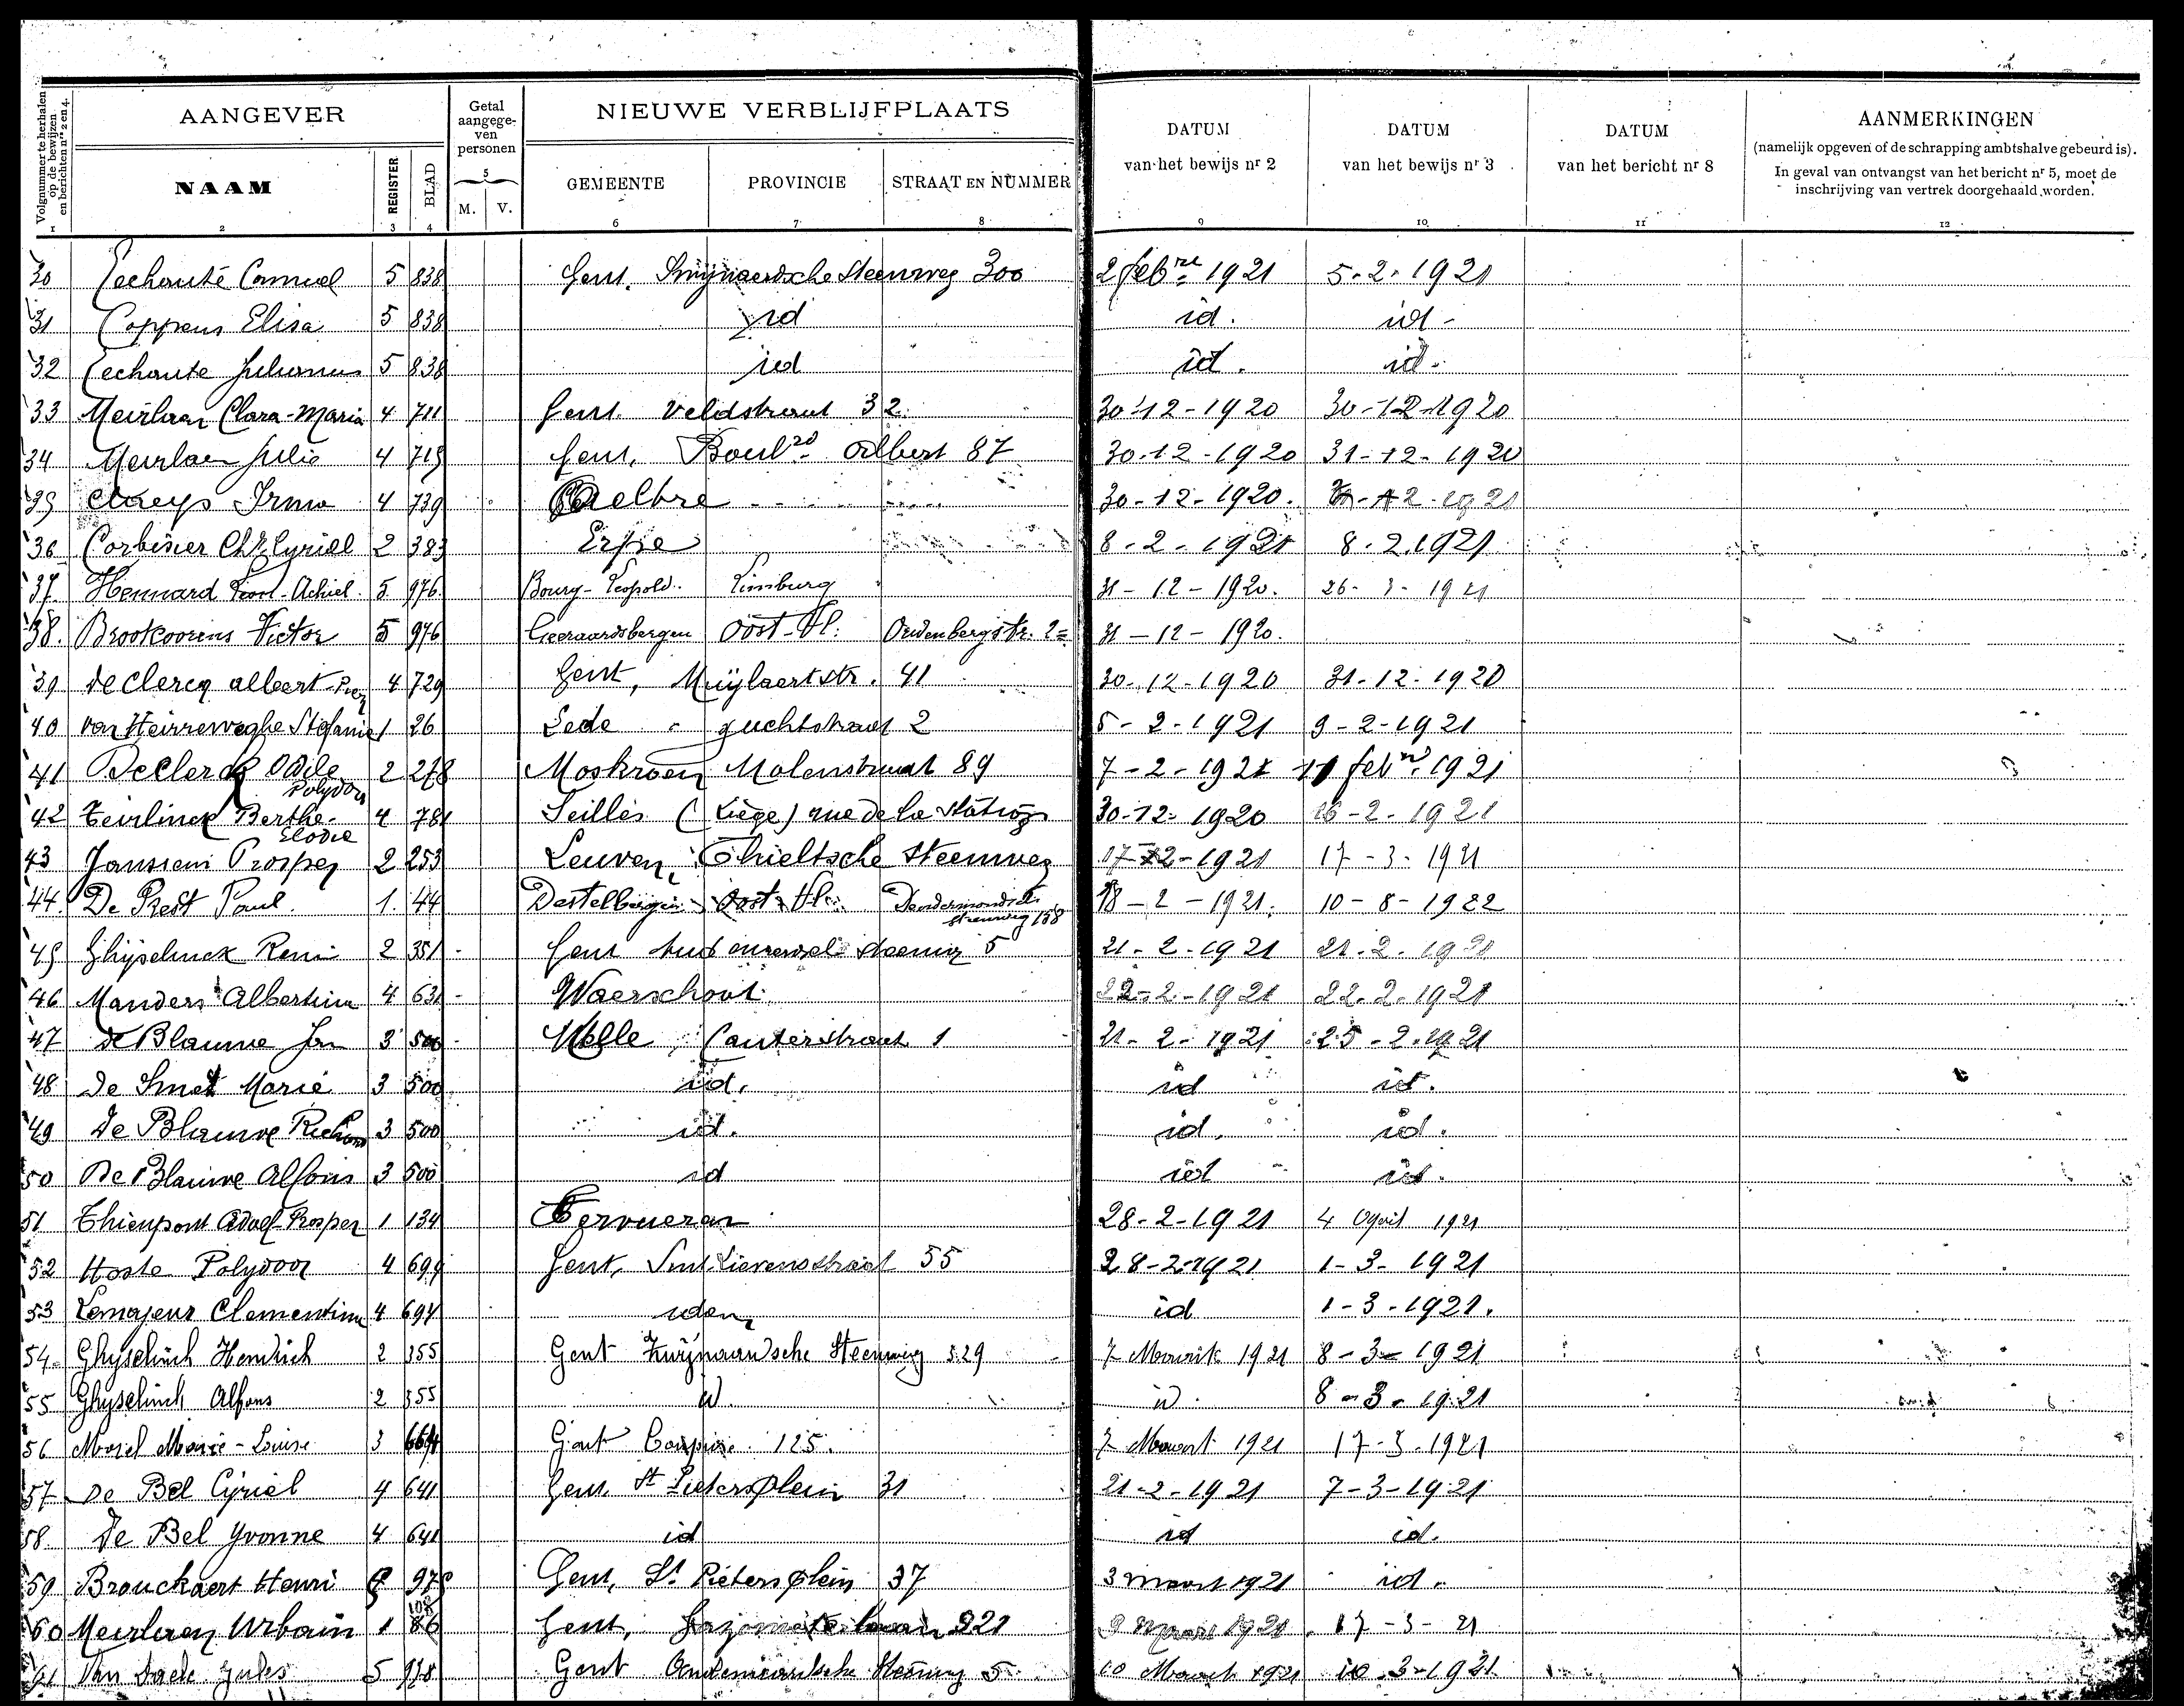 Volgnummer te herhalen op de bewijzen en berichten nrs 2 en 4.
AANGEVER
Getal aangege-ven personen
NIEUWE VERBLIJFPLAATS
DATUM van het bewijs nr 2
DATUM van het bewijs nr 3
DATUM van het bericht nr 8
AANMERKINGEN
(namelijk opgeven of de schrapping ambtshalve gebeurd is).
In geval van ontvangst van het bericht nr 5, moet de inschrijving van vertrek doorgehaald worden.
NAAM REGISTER BLAD M. V. GEMEENTE PROVINCIE STRAAT EN NUMMER
1 2 3 4 5 6 7 8 9 10 11 12
30 Eechaute Camiel 5 838 Gent. Swijnaerdsche Steenweg 300 2 febre 1921 5-2-1921
31 Coppens Elisa 5 838 id id. id-
32 Eechaute 5 838 id id. id.
33 Meirlaen Clara-Maria 4 711 Gent. Veldstraat 32. 30-12-1920 30-12-1920
34 Meirlaen Julie 4 719 Gent, Boulrd Albert 87 30-12-1920 31-12-1920
35 Claeys Irma 4 739 Aelbre 30-12-1920. 1921
36 Corbisier Cyriel 2 383 Erpe 8-2-1921 8-2.1921
37. Hennard Achiel. 5 976. Bourg-Leopold. Limburg 31-12-1920. 26-3-1921
38. Brookoorens Victor 5 976 Geeraardsbergen Oost-Vl. Oudenbergstr. 2= 31-12-1920.
39 de Clercq albert 4 729 Gent, Muylaertstr. 41 30-12-1920 31-12-1920
40 van Heirreweghe Stefanie 1 26 Lede guchtstraat 2 5-2-1921 9-2-1921
41 DeClerck Odile Polydor 2 278 Moskroen Molenstraat 89 7-2-1921 11 febri 1921
42 Teirlinck Berthe-Elodie 4 781 Seilles (Liège) rue de la Station 30-12-1920 16-2-1921
43 Janssens Prosper 2 253 Leuven, Thieltsche Steenweg 17-2-1921 17-3-1921
44. De Prest Paul. 1. 44 Destelbergen Oost-Vl. Dendermondsche steenweg 158 18-2-1921. 10-8-1922
45 Ghyselinck Remi 2 351 Gent steenweg 5 21-2-1921 21-2-1921
46 Manders Albertina 4 631 Waerschoot. 22-2-1921 22-2-1921
47 de Blauwe Jan 3 500 Melle, Cauterstraat 1 21-2-1921 25-2-1921
48 De Smet Marie 3 500 id. id id.
49 De Blauwe Richard 3 500 id. id. id.
50 De Blauwe Alfons 3 500 id id id.
51 Thienpont Adolf Prosper 1 134 Tervueren 28-2-1921 4 April 1921
52 Hoste Polydoor 4 699 Gent, Sint Lievensstraat 55 28-2-1921 1-3-1921
53 Lemajeur Clementina 4 694 idem id 1-3-1921.
54 Ghyselinck Hendrick 2 355 Gent Zwijnaardsche Steenweg 529 7 Maart 1921 8-3-1921
55 Ghyselinck Alfons 2 355 id. id. 8-3-1921
56 Morel Marie-Louise 3 664 Gent Coupure 125. 7 Maart 1921 17-3-1921
57 De Bel Cyriel 4 641 Gent. St Pietersplein 31 21-2-1921 7-3-1921
58. De Bel Yvonne 4 641 id id id.
59 Brouckaert Henri 978 Gent, St Pietersplein 37 3 maart 1921 id.
60 Meirlaen Urbain 1 108 86 Gent, Gazometerlaan 221 9 maart 1921 17-3-21
61 Van Daele Jules 5 978 Gent Oudenaardsche Steenweg 5 10 Maart 1921 10-3-1921